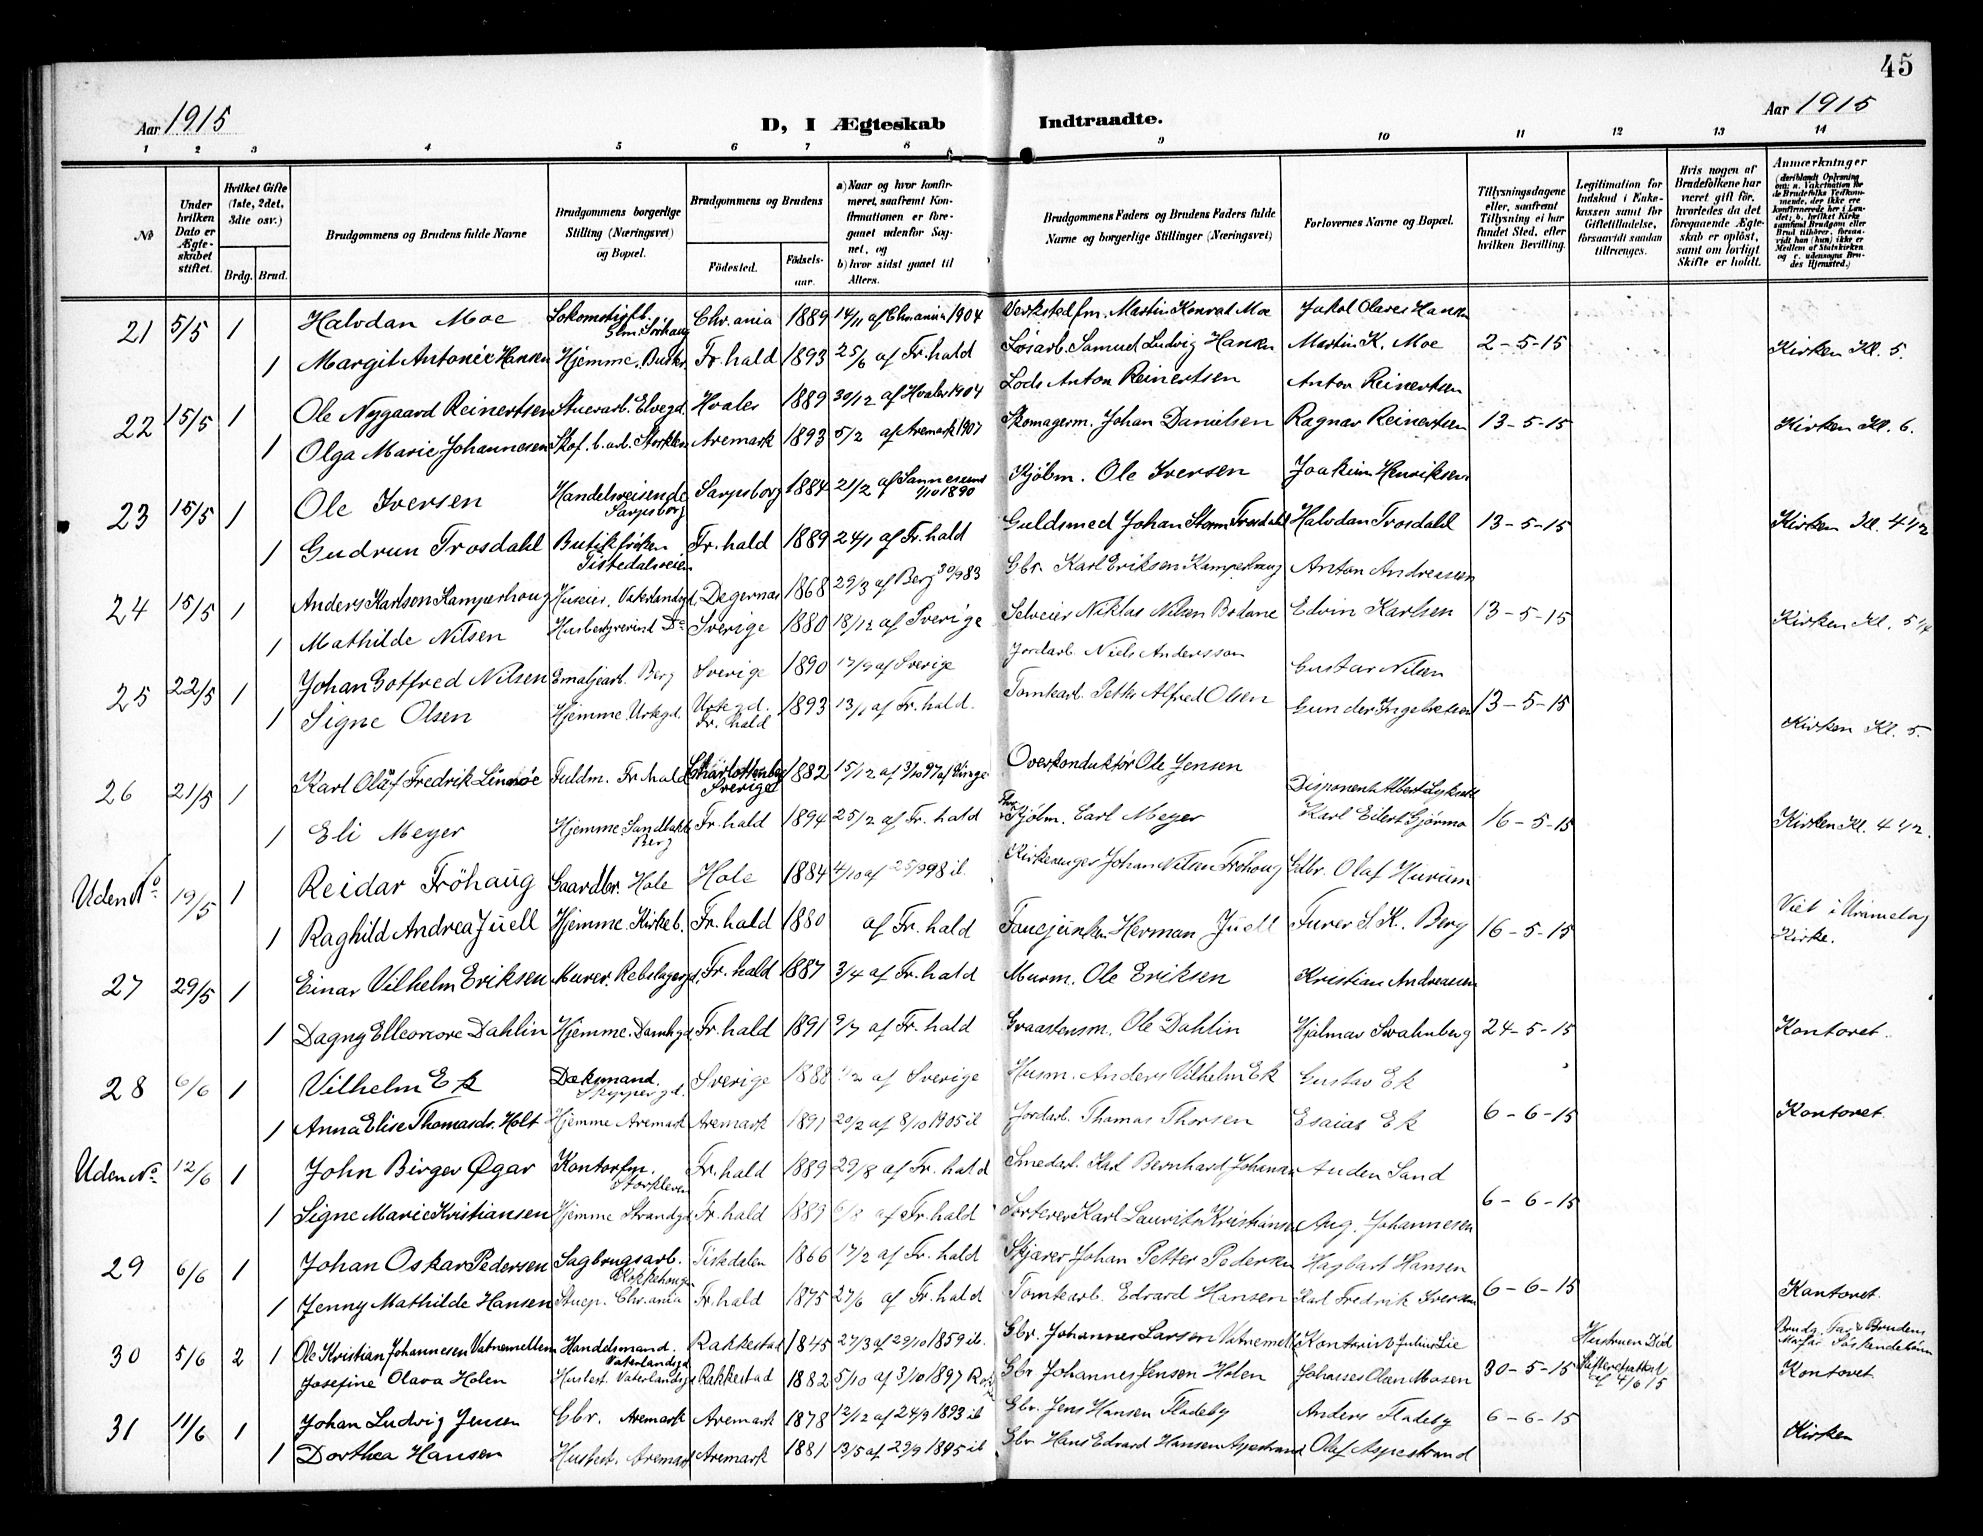 45
Aar 1915
D, I Ægteskab
Indtraadte.
Aar 1915
1 2 3 4 5 6 7 8 9 10 11 12 13 14
No
Under hvilken Dato er Ægteskabet stiftet.
Hvilket Gifte (1ste, 2det, 3die osv.)
Brdg. Brud.
Brudgommens og Brudens fulde Navne
Brudgommens borgerlige Stilling (Næringsvei) og Bopæl.
Brudgommens og Brudens
Fødested. Fødselsaar.
a) Naar og hvor konfirmeret, saafremt Konfirmationen er foregaaet udenfor Sognet, og
b) hvor sidst gaaet til Alters.
Brudgommens Faders og Brudens Faders fulde Navne og borgerlige Stillinger (Næringsvei)
Forlovernes Navne og Bopæl.
Tillysningsdagene eller, saafremt Tillysning ei har fundet Sted, efter hvilken Bevilling.
Legitimation for Indskud i Enkekassen samt for Giftetilladelse, forsaavidt saadan tiltrænges.
Hvis nogen af Brudefolkene har været gift før, hvorledes da det foregaaende Ægteskab er opløst, samt om lovligt Skifte er holdt.
Anmærkninger
21 5/5 1 Halvdan Moe Chr.ania 1889 14/11 af Chr.ania 1904 Verkstedfm. Martin Konrad Moe Jakob Olaves Hansen
1 Margit Antonie Hansen Hjemme, Fr. hald 1893 25/6 af Fr. hald Løsarb. Samuel Ludvig Hansen Martin K. Moe 2-5-15 Kirken Kl. 5.
22 15/5 1 Ole Nygaard Reinertsen Stuerarb. Elvegd. Hvaler 1889 30/12 af Hvaler 1904 Lods Anton Reinertsen Anton Reinertsen
1 Olga Marie Johannesen Skof. b. arb. Storklev. Aremark 1893 5/2 af Aremark 1907 Skomagerm. Johan Danielsen Ragnar Reinertsen 13-5-15 Kirken Kl. 6.
23 15/5 1 Ole Iversen Handelsreisende Sarpsborg Sarpsborg 1884 21/2 af Sannesund 1/10 1890 Kjøbm. Ole Iversen Joakim Henriksen
1 Gudrun Trosdahl Butikfrøken Tistedalsveien Fr. hald 1889 24/1 af Fr. hald Guldsmed Johan Storm Trosdahl Halvdan Trosdahl 13-5-15 Kirken Kl. 4 1/2
24 15/5 1 Anders Karlson Kamperhoug Huseier, Vaterlandsgd. Degernes 1868 29/3 af Berg 30/9 83 Gbr. Karl Eriksen Kamperhaug Anton Andreasen
1 Mathilde Nilsen Husbestyrerind Do Sverige 1880 18/12 af Sverige Selveier Niklas Nilsen Botane Edvin Karlsen 13-5-15 Kirken Kl. 5 1/4
25 22/5 1 Johan Gotfred Nilsen Emaljearb. Berg Sverige 1890 17/9 af Sverige Jordarb. Niels Andersson Gustav Nilsen
1 Signe Olsen Hjemme Urtegd. Urtegd. Fr. hald 1893 13/1 af Fr. hald. Tomtearb. Petter Alfred Olsen Gunder Ingebretsen 13-5-15 Kirken Kl. 5.
26 21/5 1 Karl Olaf Fredrik Lindsøe Fuldm. Fr. hald Charlottenberg Sverige 1882 15/12 af 3/10 97 af Vinge Overkonduktør Ole Jensen Disponent Albert Lyksett
1 Eli Meyer Hjemme Sandbakk. Berg Fr. hald 1894 25/2 af Fr. hald Kjøbm. Carl Meyer Karl Eilert Gjørmo 16-5-15 Kirken Kl. 4 1/2.
Uden No. 19/5 1 Reidar Frøhaug Gaardbr. Hole Hole 1884 4/10 af 25/9 98 ib. Kirkesanger Johan Nilsen Frøhoug Gdbr. Olaf Hurum
1 Raghild Andrea Juell Hjemme. Kirkeb. Fr. hald 1880 af Fr. hald Herman Juell Furer S. K. Berg 16-5-15 Viet i Uranienborg Kirke.
27 29/5 1 Einar Vilhelm Eriksen Murer. Rebslagergd. Fr. hald 1887 3/4 af Fr. hald Murm. Ole Eriksen Kristian Andreasen
1 Dagny Elleonore Dahlin Hjemme. Damhgd. Fr. hald 1891 9/7 af Fr. hald Graastensm. Ole Dahlin Hjalmar Swahnberg 24-5-15 Kontoret.
28 6/6 1 Vilhelm Ek Dæksmand. Skippergd. Sverige 1888 af Sverige Husm. Anders Vilhelm Ek Gustav Ek
1 Anna Elise Thomasdr. Holt Hjemme Aremark Aremark 1891 20/2 af 8/10 1905 ib Jordarb. Thomas Thorsen Esaias Ek 6-6-15 Kontoret.
Uden No. 12/6 1 John Birger Øgar Kontorfm. Storkleven Fr. hald 1889 29/8 af Fr. hald Smedarb. Karl Bernhard Johansen Auden Sand
1 Signe Marie Kristiansen Hjemme Strandgd. Fr. hald 1889 6/8 af Fr. hald Sorterer Karl Laurits Kristiansen Aug. Johannesen 6-6-15
29 6/6 1 Johan Oskar Pedersen Sagbrugsarb. Tistedalen 1866 17/2 af Fr. hald Skjærer Johan Petter Pedersen Hagbart Hansen
1 Jenny Mathilde Hansen Stuep. Chr.ania Fr. hald 1875 27/6 af Fr. hald Tomtearb. Edvard Hansen Karl Fredrik Iversen 6-6-15 Kontoret.
30 5/6 2 1 Ole Kristian Johannesen Vatnemellem Handelsmand. Vaterlandsgd. Rakkestad 1845 27/3 af 29/10 1859 ib. Gbr. Johannes Larsen Vatnemell. Kontorist Julius Lie Hustruen Død
Josefine Olava Holen Husbest. Vaterlandsgd. Rakkestad 1882 5/10 af 3/10 1897 Gbr Johannes Jensen Holen Johannes Olen Mosen 30-5-15 Skifteretsattest af 4/6 15 Kontoret.
31 11/6 1 Johan Ludvig Jensen Gbr. Aremark Aremark 1878 12/12 af 24/9 1893 ib Gbr. Jens Hansen Fladeby Anders Fladeby 6-6-15
1 Dorthea Hansen Husbest. Aremark Aremark 1881 13/5 af 29/9 1895 ib Gbr. Hans Edvard Hansen Aspestrand Olaf Aspestrand Kirken